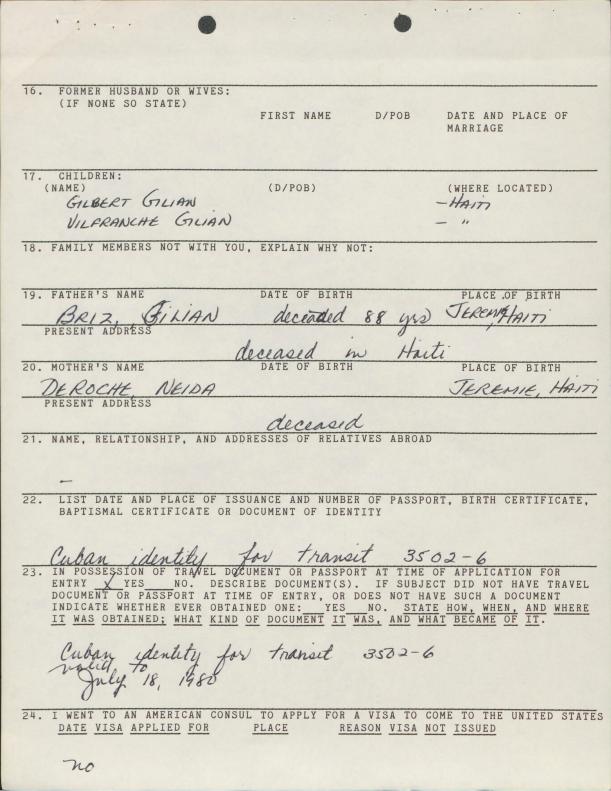 16. FORMER HUSBAND OR WIVES:
(IF NONE SO STATE)
FIRST NAME D/POB DATE AND PLACE OF
MARRIAGE
17. CHILDREN:
(NAME) (D/POB) (WHERE LOCATED)
GILBERT GILIAN - HAITI
VILFRANCHE GILIAN - "
18. FAMILY MEMBERS NOT WITH YOU, EXPLAIN WHY NOT:
19. FATHER'S NAME DATE OF BIRTH PLACE OF BIRTH
BRIZ, GILIAN deceaded 88 yrs JEREMIE, HAITI
PRESENT ADDRESS
deceased in Haiti
20. MOTHER'S NAME DATE OF BIRTH PLACE OF BIRTH
DEROCHE, NEIDA JEREMIE, HAITI
PRESENT ADDRESS
deceased
21. NAME, RELATIONSHIP, AND ADDRESSES OF RELATIVES ABROAD
-
22. LIST DATE AND PLACE OF ISSUANCE AND NUMBER OF PASSPORT, BIRTH CERTIFICATE,
BAPTISMAL CERTIFICATE OR DOCUMENT OF IDENTITY
Cuban identity for transit 3502-6
23. IN POSSESSION OF TRAVEL DOCUMENT OR PASSPORT AT TIME OF APPLICATION FOR
ENTRY X YES NO. DESCRIBE DOCUMENT(S). IF SUBJECT DID NOT HAVE TRAVEL
DOCUMENT OR PASSPORT AT TIME OF ENTRY, OR DOES NOT HAVE SUCH A DOCUMENT
INDICATE WHETHER EVER OBTAINED ONE: YES NO. STATE HOW, WHEN, AND WHERE
IT WAS OBTAINED; WHAT KIND OF DOCUMENT IT WAS, AND WHAT BECAME OF IT.
Cuban identity for transit 3502-6
valid to
July 18, 1980
24. I WENT TO AN AMERICAN CONSUL TO APPLY FOR A VISA TO COME TO THE UNITED STATES
DATE VISA APPLIED FOR PLACE REASON VISA NOT ISSUED
no